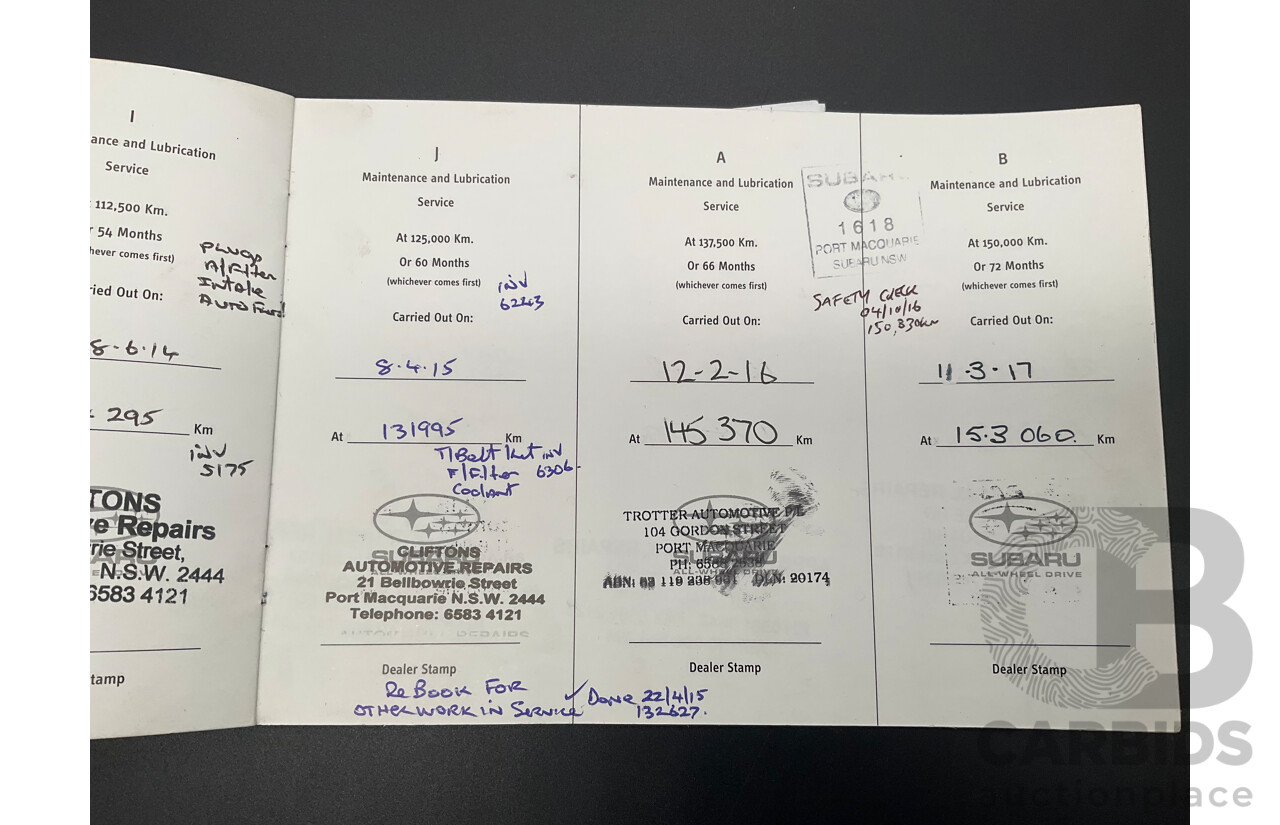 I
ance and Lubrication
Service
112,500 Km.
54 Months
hever comes first)
ried Out On:
Plugs
A/Filter
Intake
Auto Fluid
8-6-14
295 Km
inv
5175
TONS
e Repairs
rie Street,
N.S.W. 2444
6583 4121
tamp
J
Maintenance and Lubrication
Service
At 125,000 Km.
Or 60 Months
(whichever comes first)
inv
62243
Carried Out On:
8.4.15
At 131995 Km
T/Belt Kit inv
F/Filter 6306
Coolant
CLIFTONS
AUTOMOTIVE REPAIRS
21 Bellbowrie Street
Port Macquarie N.S.W. 2444
Telephone: 6583 4121
Dealer Stamp
ReBook For
other work in Service
✓ Done 22/4/15
132627.
A
Maintenance and Lubrication
Service
At 137,500 Km.
Or 66 Months
(whichever comes first)
Carried Out On:
12-2-16
At 145 370 Km
TROTTER AUTOMOTIVE P/L
104 GORDON STREET
PORT MACQUARIE
DLN: 20174
Dealer Stamp
SUBARU
1618
PORT MACQUARIE
SUBARU NSW
SAFETY CHECK
04/10/16
150,830km
B
Maintenance and Lubrication
Service
At 150,000 Km.
Or 72 Months
(whichever comes first)
Carried Out On:
11.3.17
At 153 060. Km
SUBARU
ALL-WHEEL DRIVE
Dealer Stamp
CARBIDS
auctionplace